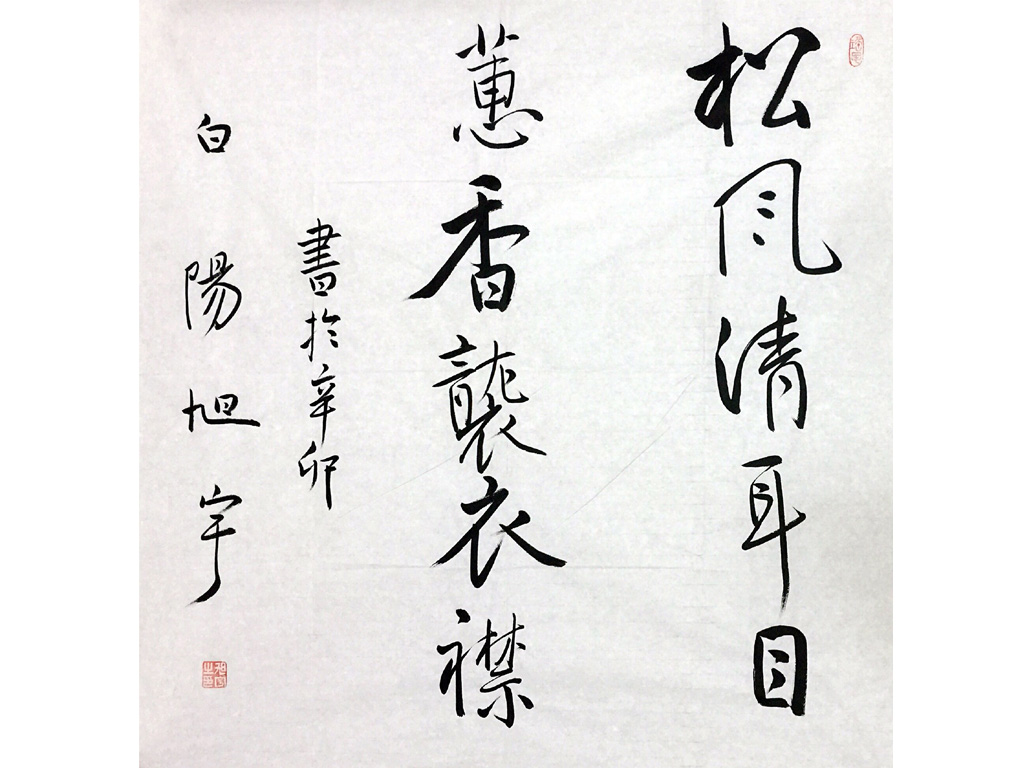 松風清耳目
蕙香襲衣襟
書於辛卯
白陽旭宇